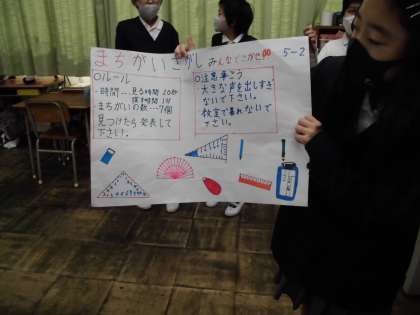 まちがいさがし みんなでこがせ!! 5-2
○ルール
・時間…見る時間 20秒
探す時間 1分
まちがいの数…7個
見つけたら発表して
下さい。
○注意事こう
大きな声を出しすぎ
ないで下さい。
教室で暴れないで
下さい。